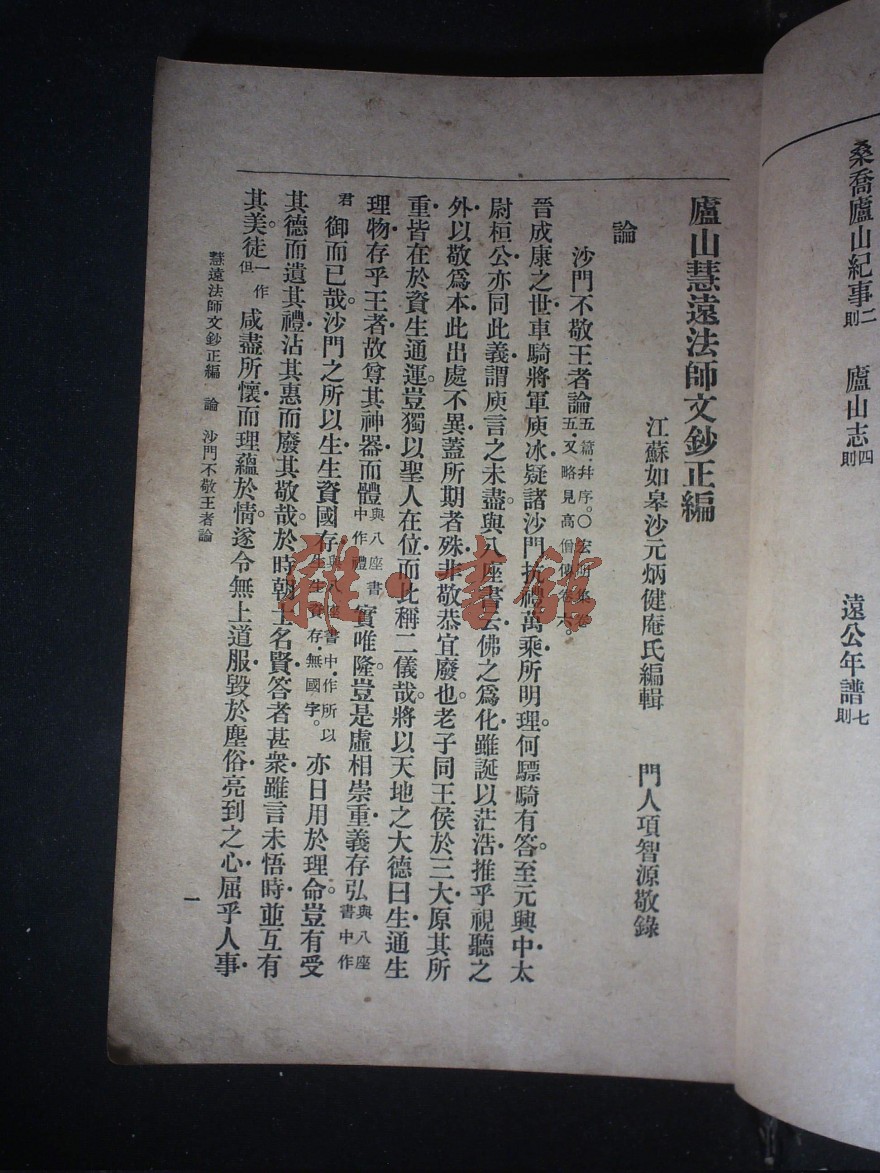 桑喬廬山紀事二則　廬山志四則　遠公年譜七則
廬山慧遠法師文鈔正編
江蘇如皋沙元炳健庵氏編輯　門人項智源敬錄
論
沙門不敬王者論五篇并序。○
五。又略見高僧傳卷六。
晉成康之世・車騎將軍庾冰・疑諸沙門抗禮萬乘・所明理何驃騎有答。至元興中・太
尉桓公亦同此義・謂庾言之未盡。與八座書云・佛之爲化・雖誕以茫浩・推乎視聽之
外・以敬爲本・此出處不異・蓋所期者殊・非敬恭宜廢也。老子同王侯於三大・原其所
重・皆在於資生通運。豈獨以聖人在位・而比稱二儀哉。將以天地之大德曰生・通生
理物・存乎王者・故尊其神器・而體與八座書中作禮實唯隆。豈是虛相崇重・義存弘與八座書中作
君御而已哉。沙門之所以生生資國存與八座書中・作所以生生資存・無國字。亦日用於理命。豈有受
其德而遺其禮・沾其惠而廢其敬哉。於時朝士名賢・答者甚衆・雖言未悟時・並互有
其美。徒一作但咸盡所懷・而理蘊於情。遂令無上道服・毀於塵俗・亮到之心・屈乎人事・
慧遠法師文鈔正編　論　沙門不敬王者論
一
雜・書館